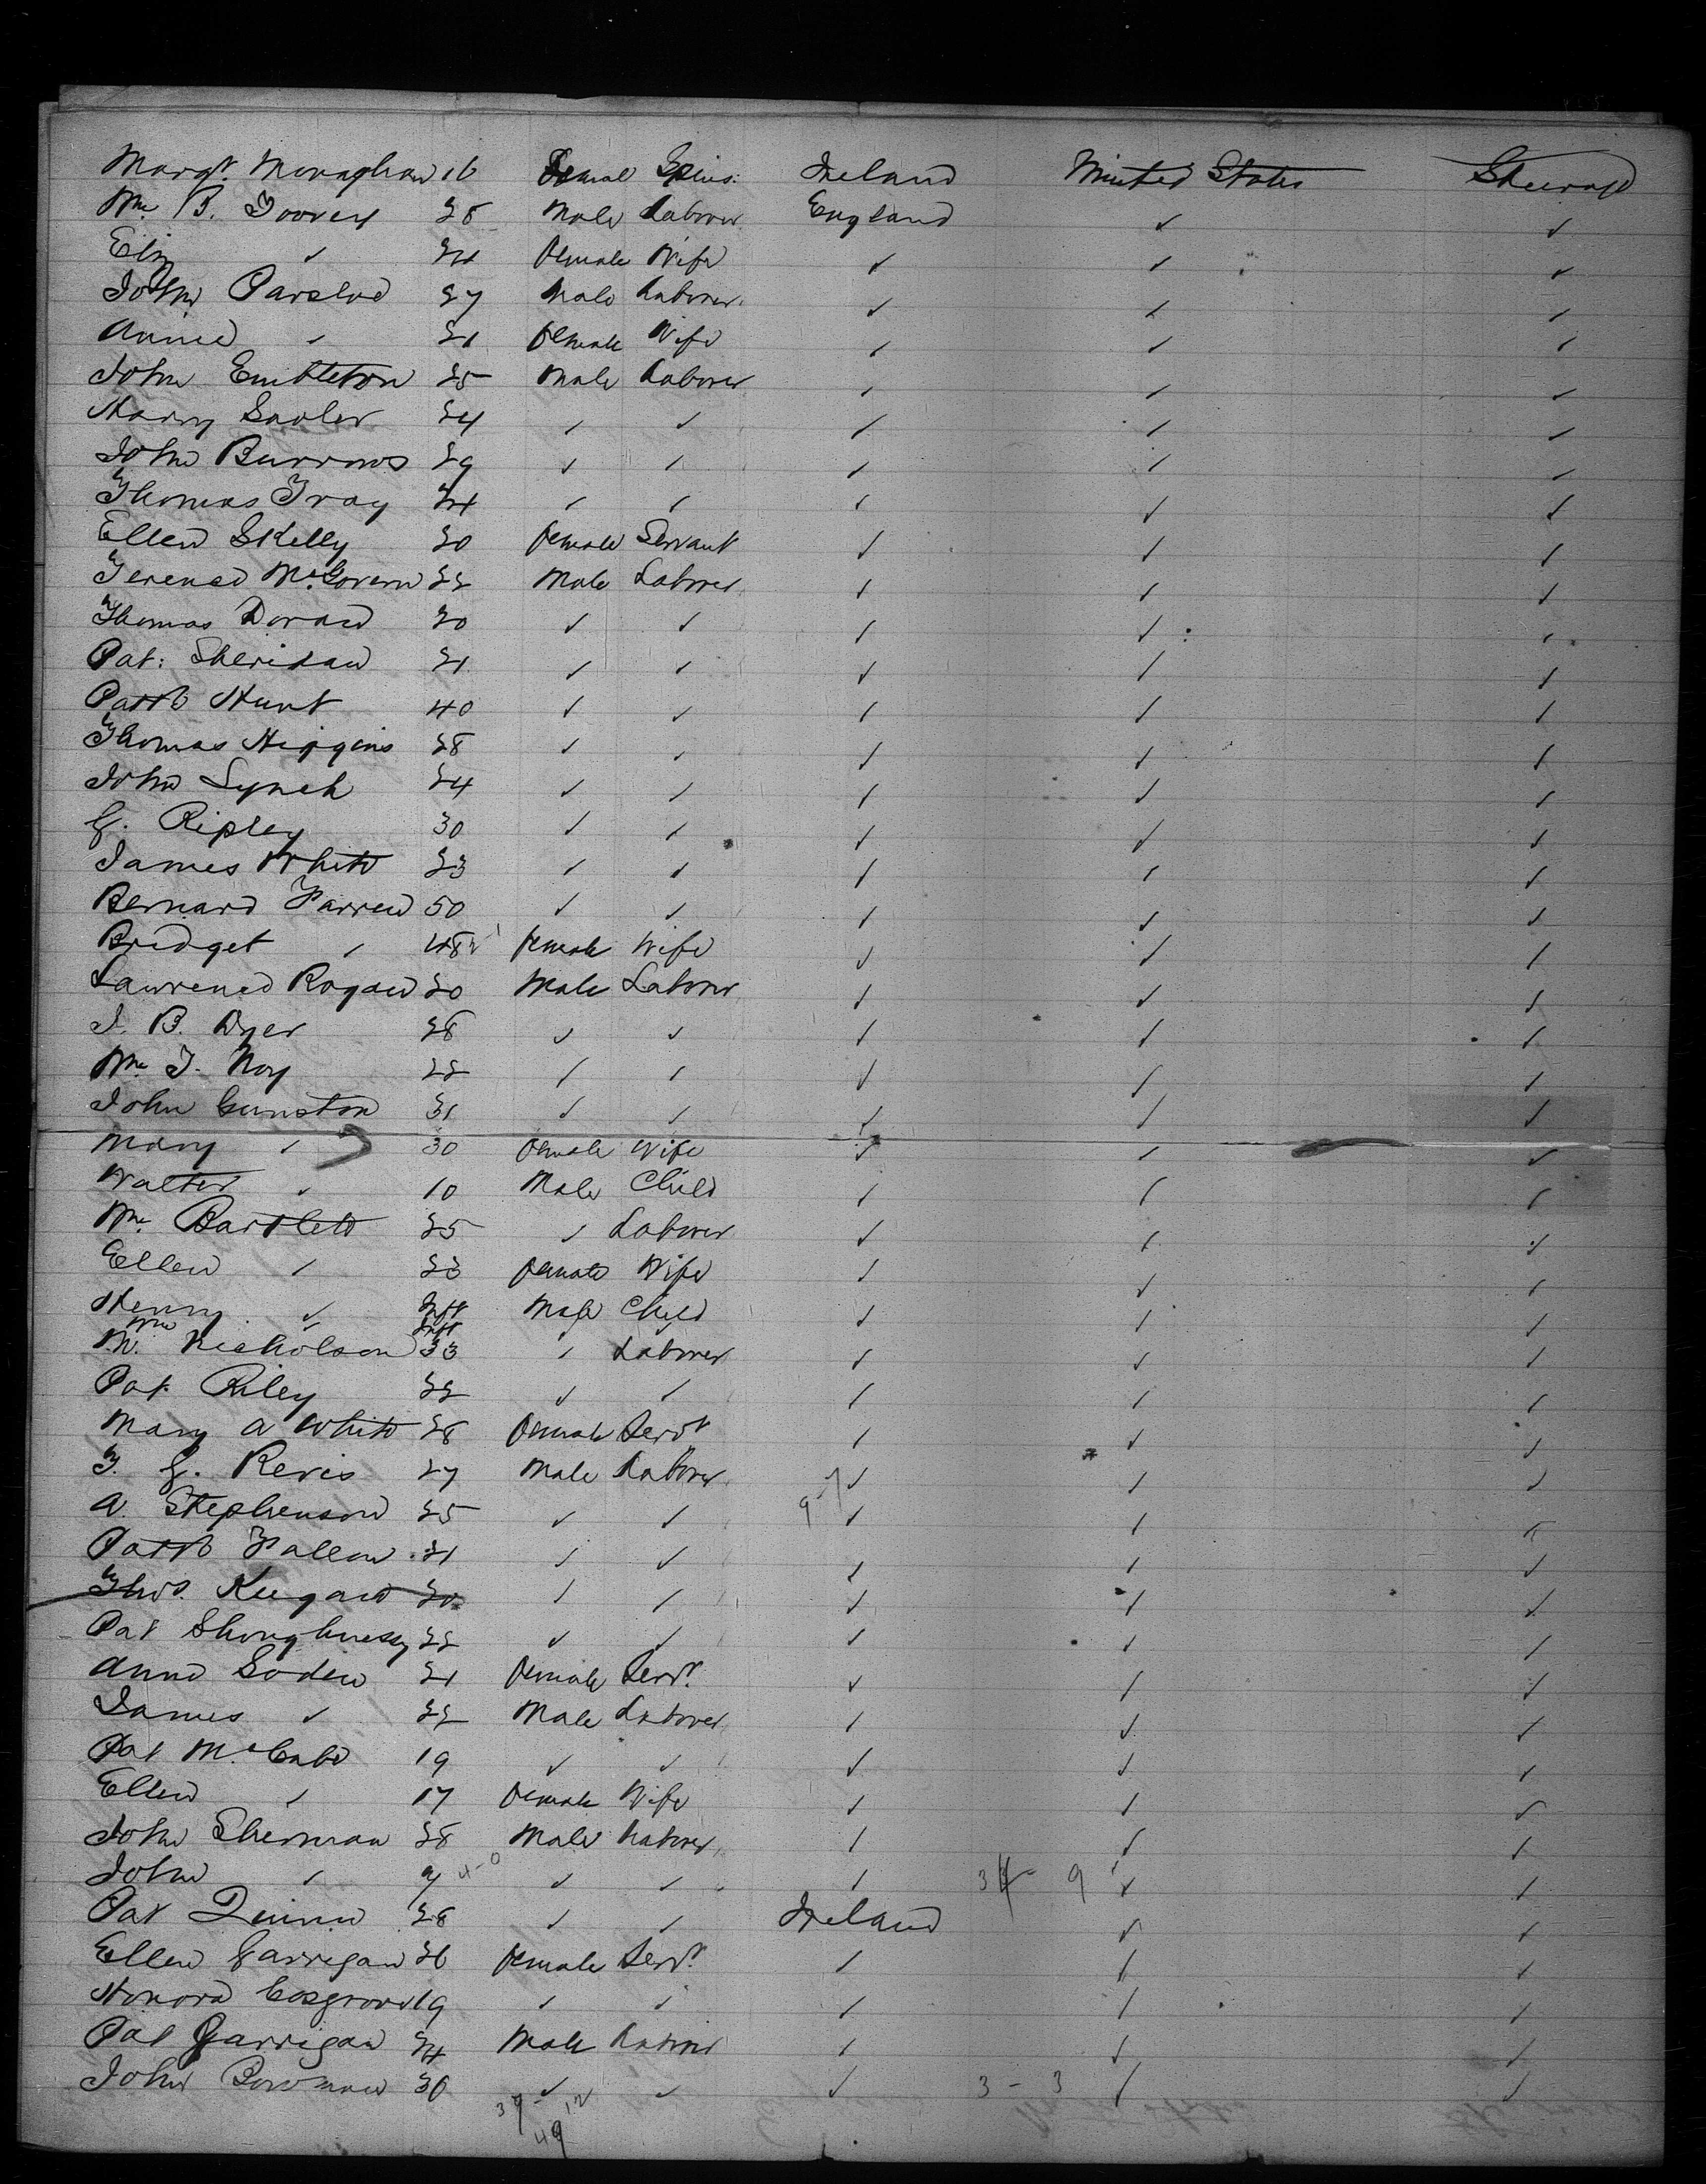 Margt. Monaghan 16 Female Spins: Ireland United States Steerage
Wm. B. Toovey 28 Male Laborer England ✓ ✓
Eliz ✓ 24 Female Wife ✓ ✓ ✓
John Parsloe 27 Male Laborer ✓ ✓ ✓
Annie ✓ 21 Female Wife ✓ ✓ ✓
John Embleton 25 Male Laborer ✓ ✓ ✓
Harry Sadler 24 ✓ ✓ ✓ ✓ ✓
John Burrows 29 ✓ ✓ ✓ ✓ ✓
Thomas Gray 24 ✓ ✓ ✓ ✓ ✓
Ellen Skelly 20 Female Servant ✓ ✓ ✓
Terence McGovern 22 Male Laborer ✓ ✓ ✓
Thomas Doran 20 ✓ ✓ ✓ ✓ ✓
Pat: Sheridan 21 ✓ ✓ ✓ ✓ ✓
Patk Hunt 40 ✓ ✓ ✓ ✓ ✓
Thomas Higgins 28 ✓ ✓ ✓ ✓ ✓
John Lynch 24 ✓ ✓ ✓ ✓ ✓
G. Ripley 30 ✓ ✓ ✓ ✓ ✓
James White 23 ✓ ✓ ✓ ✓ ✓
Bernard Farren 50 ✓ ✓ ✓ ✓ ✓
Bridget ✓ 48 Female Wife ✓ ✓ ✓
Lawrence Rogan 20 Male Laborer ✓ ✓ ✓
J. B. Dyer 28 ✓ ✓ ✓ ✓ ✓
Wm. T. Noy 22 ✓ ✓ ✓ ✓ ✓
John Cunston 31 ✓ ✓ ✓ ✓ ✓
Mary ✓ 30 Female Wife ✓ ✓ ✓
Walter ✓ 10 Male Child ✓ ✓ ✓
Wm. Bartlett 25 ✓ Laborer ✓ ✓ ✓
Ellen ✓ 23 Female Wife ✓ ✓ ✓
Henry ✓ Inft Male Child ✓ ✓ ✓
Wm. Nicholson 33 ✓ Laborer ✓ ✓ ✓
Pat. Riley 22 ✓ ✓ ✓ ✓ ✓
Mary A White 28 Female Servt ✓ ✓ ✓
T. G. Revis 27 Male Laborer ✓ ✓ ✓
A. Stephenson 25 ✓ ✓ ✓ ✓ ✓
Patk Fallon 21 ✓ ✓ ✓ ✓ ✓
Thos. Keegan 20 ✓ ✓ ✓ ✓ ✓
Pat Shoughnessy 22 ✓ ✓ ✓ ✓ ✓
Anne Soden 21 Female Servt. ✓ ✓ ✓
James ✓ 22 Male Laborer ✓ ✓ ✓
Pat McCabe 19 ✓ ✓ ✓ ✓ ✓
Ellen ✓ 17 Female Wife ✓ ✓ ✓
John Sherman 38 Male Laborer ✓ ✓ ✓
John ✓ 9 ✓ ✓ ✓ ✓ ✓
Pat Quinn 28 ✓ ✓ Ireland ✓ ✓
Ellen Garrigan 26 Female Servt. ✓ ✓ ✓
Honora Cosgrove 19 ✓ ✓ ✓ ✓ ✓
Pat Garrigan 24 Male Laborer ✓ ✓ ✓
John Bowman 30 ✓ ✓ ✓ 3 - 3 ✓ ✓
39 - 12
49